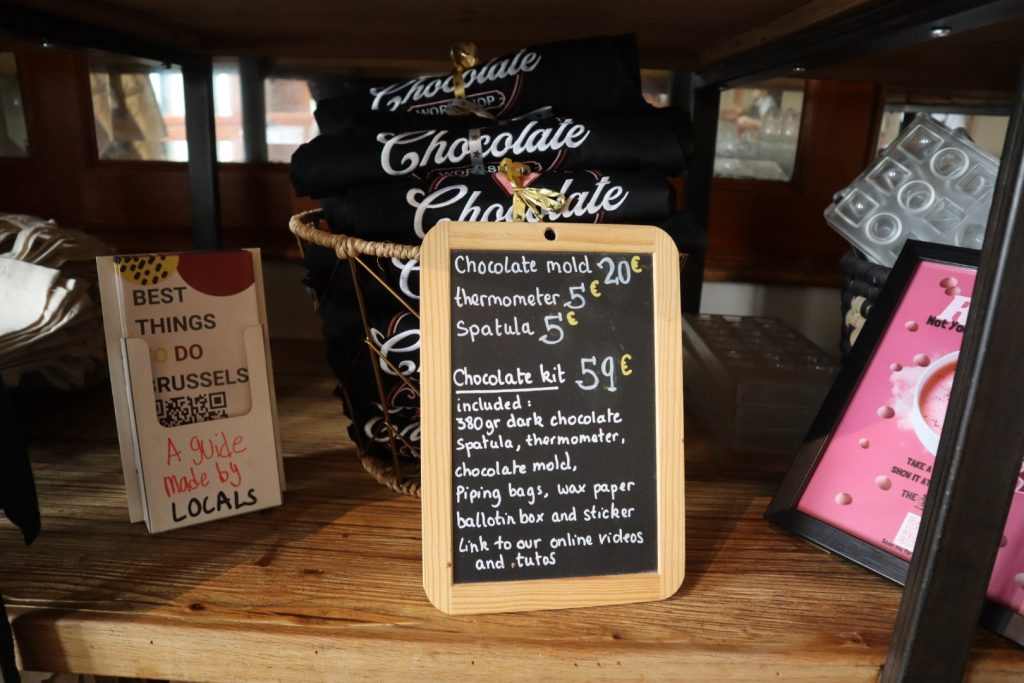 Chocolate
WORKSHOP
Chocolate
Chocolate
Chocolate mold 20€
thermometer 5€
Spatula 5€
Chocolate kit 59€
included :
380gr dark chocolate
Spatula, thermometer,
chocolate mold,
Piping bags, wax paper
ballotin box and sticker
Link to our online videos
and tutos
BEST
THINGS
TO DO
BRUSSELS
A guide
made by
LOCALS
TAKE A
THE